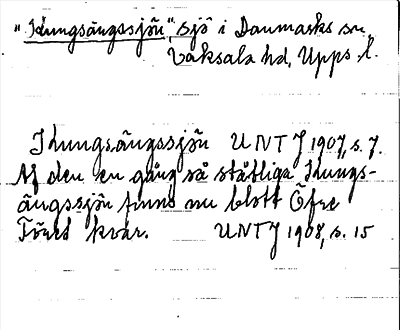 "Kungsängssjön", sjö i Danmarks sn,
Vaksala hd, Upps. l.
Kungsängssjön UNT J 1907, s. 7.
Af den en gång så ståtliga Kungs-
ängssjön finns nu blott Öfre
Föret kvar. UNT J 1908, s. 15